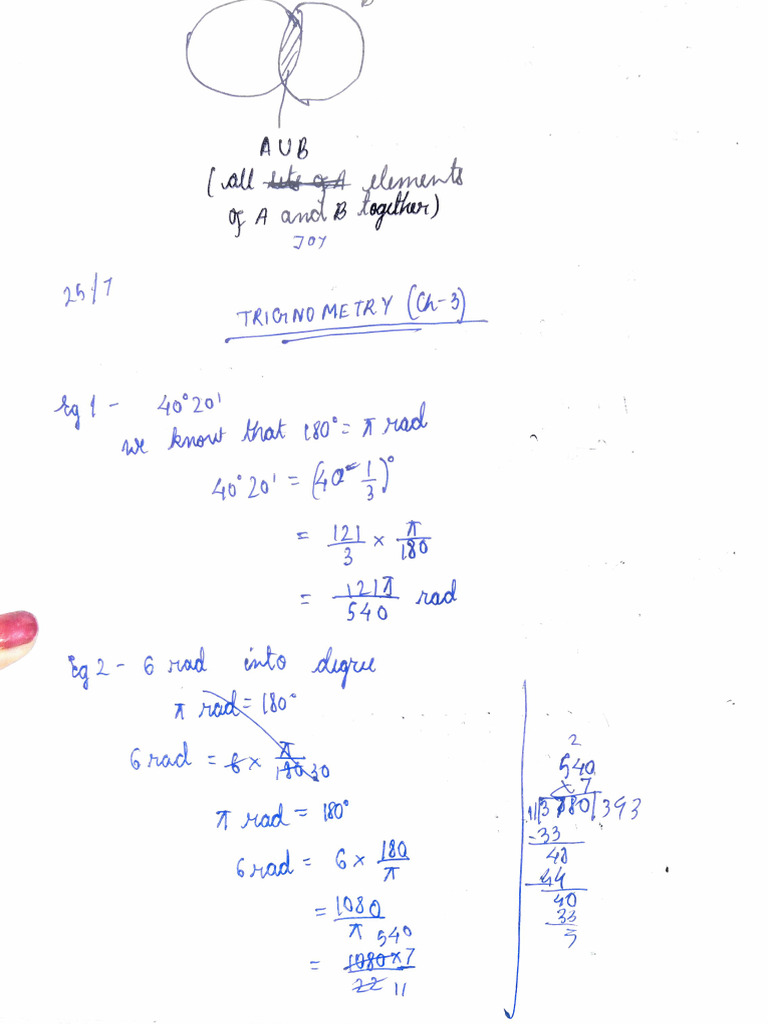 B
A U B
(all sets of A elements
of A and B together)
JOY
25/7
TRIGINOMETRY (Ch-3)
Eg 1 - 40°20'
we know that 180° = π rad
40°20' = (40 1/3)°
= 121/3 × π/180
= 121π/540 rad
Eg 2 - 6 rad into degree
π rad = 180°
6 rad = 6 × π/180 30
π rad = 180°
6 rad = 6 × 180/π
= 1080/π
540
= 1080×7/22 11
2
540
×7
11|3780|393
-33
48
-44
40
33